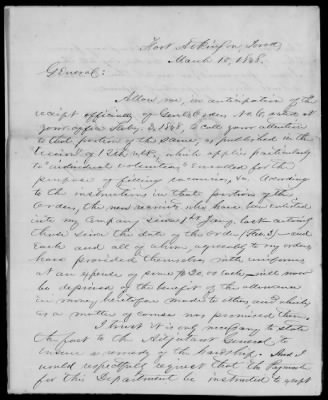 Fort Atkinson, Iowa
March 10, 1848.
General:
Allow me, in anticipation of the
receipt officially of Gen'l Orders, No 6, dated at
your office Feby. 3, 1848, to call your attention
to that portion of the same, as published in the
"Union" of 12th ult., which applies particularly
to "individual volunteers" enrolled for the
purpose of filling vacancies, &c. According
to the instructions in that portion of the
Orders, the new recruits who have been enlisted
into my Company since 1st Jany. last
those since the date of the Order (Feb. 3) — and
Each and all of whom, agreeably to my orders
have provided themselves with uniforms
at an expense of some $20.00 each — will now
be deprived of the benefit of the allowance
in money heretofore made to others, and which,
as a matter of course was promised them.
I trust it is only necessary to state
the fact to the Adjutant General to
ensure a remedy of the hardship. And I
would respectfully request that the Paymaster
for this Department be instructed to